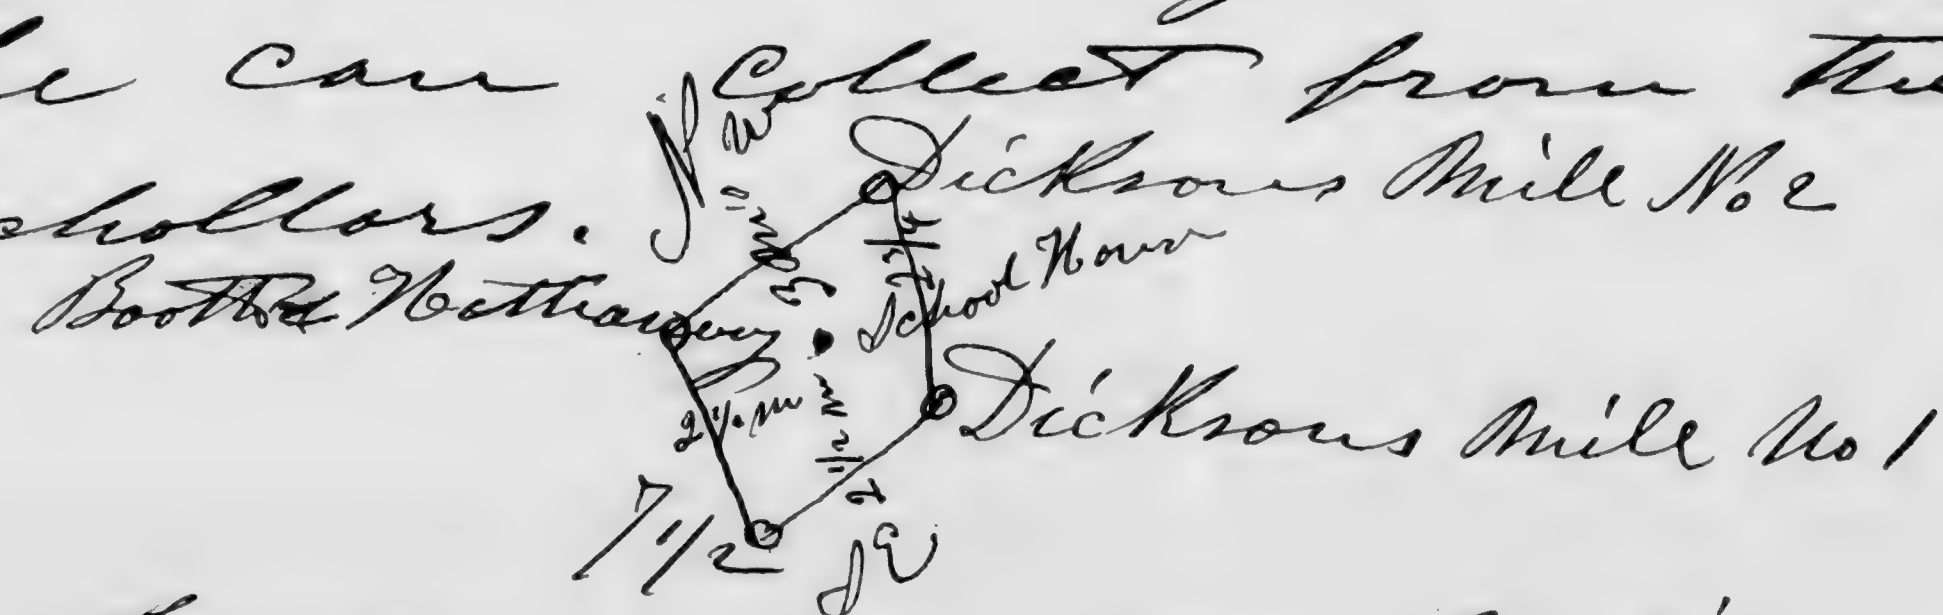 can collect from the
shollars.
N W
Dicksons Mill No. 2
School House
Booth & Hathaway
3
2 1/2 m
Dicksons Mill No 1
7 1/2
2 1/2 m
S E